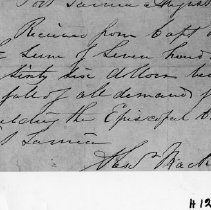 Port Sarnia August
Received from Capt
Sum of Seven hund
sixty six dollars
full of all demands
building the Episcopal
Sarnia
H12